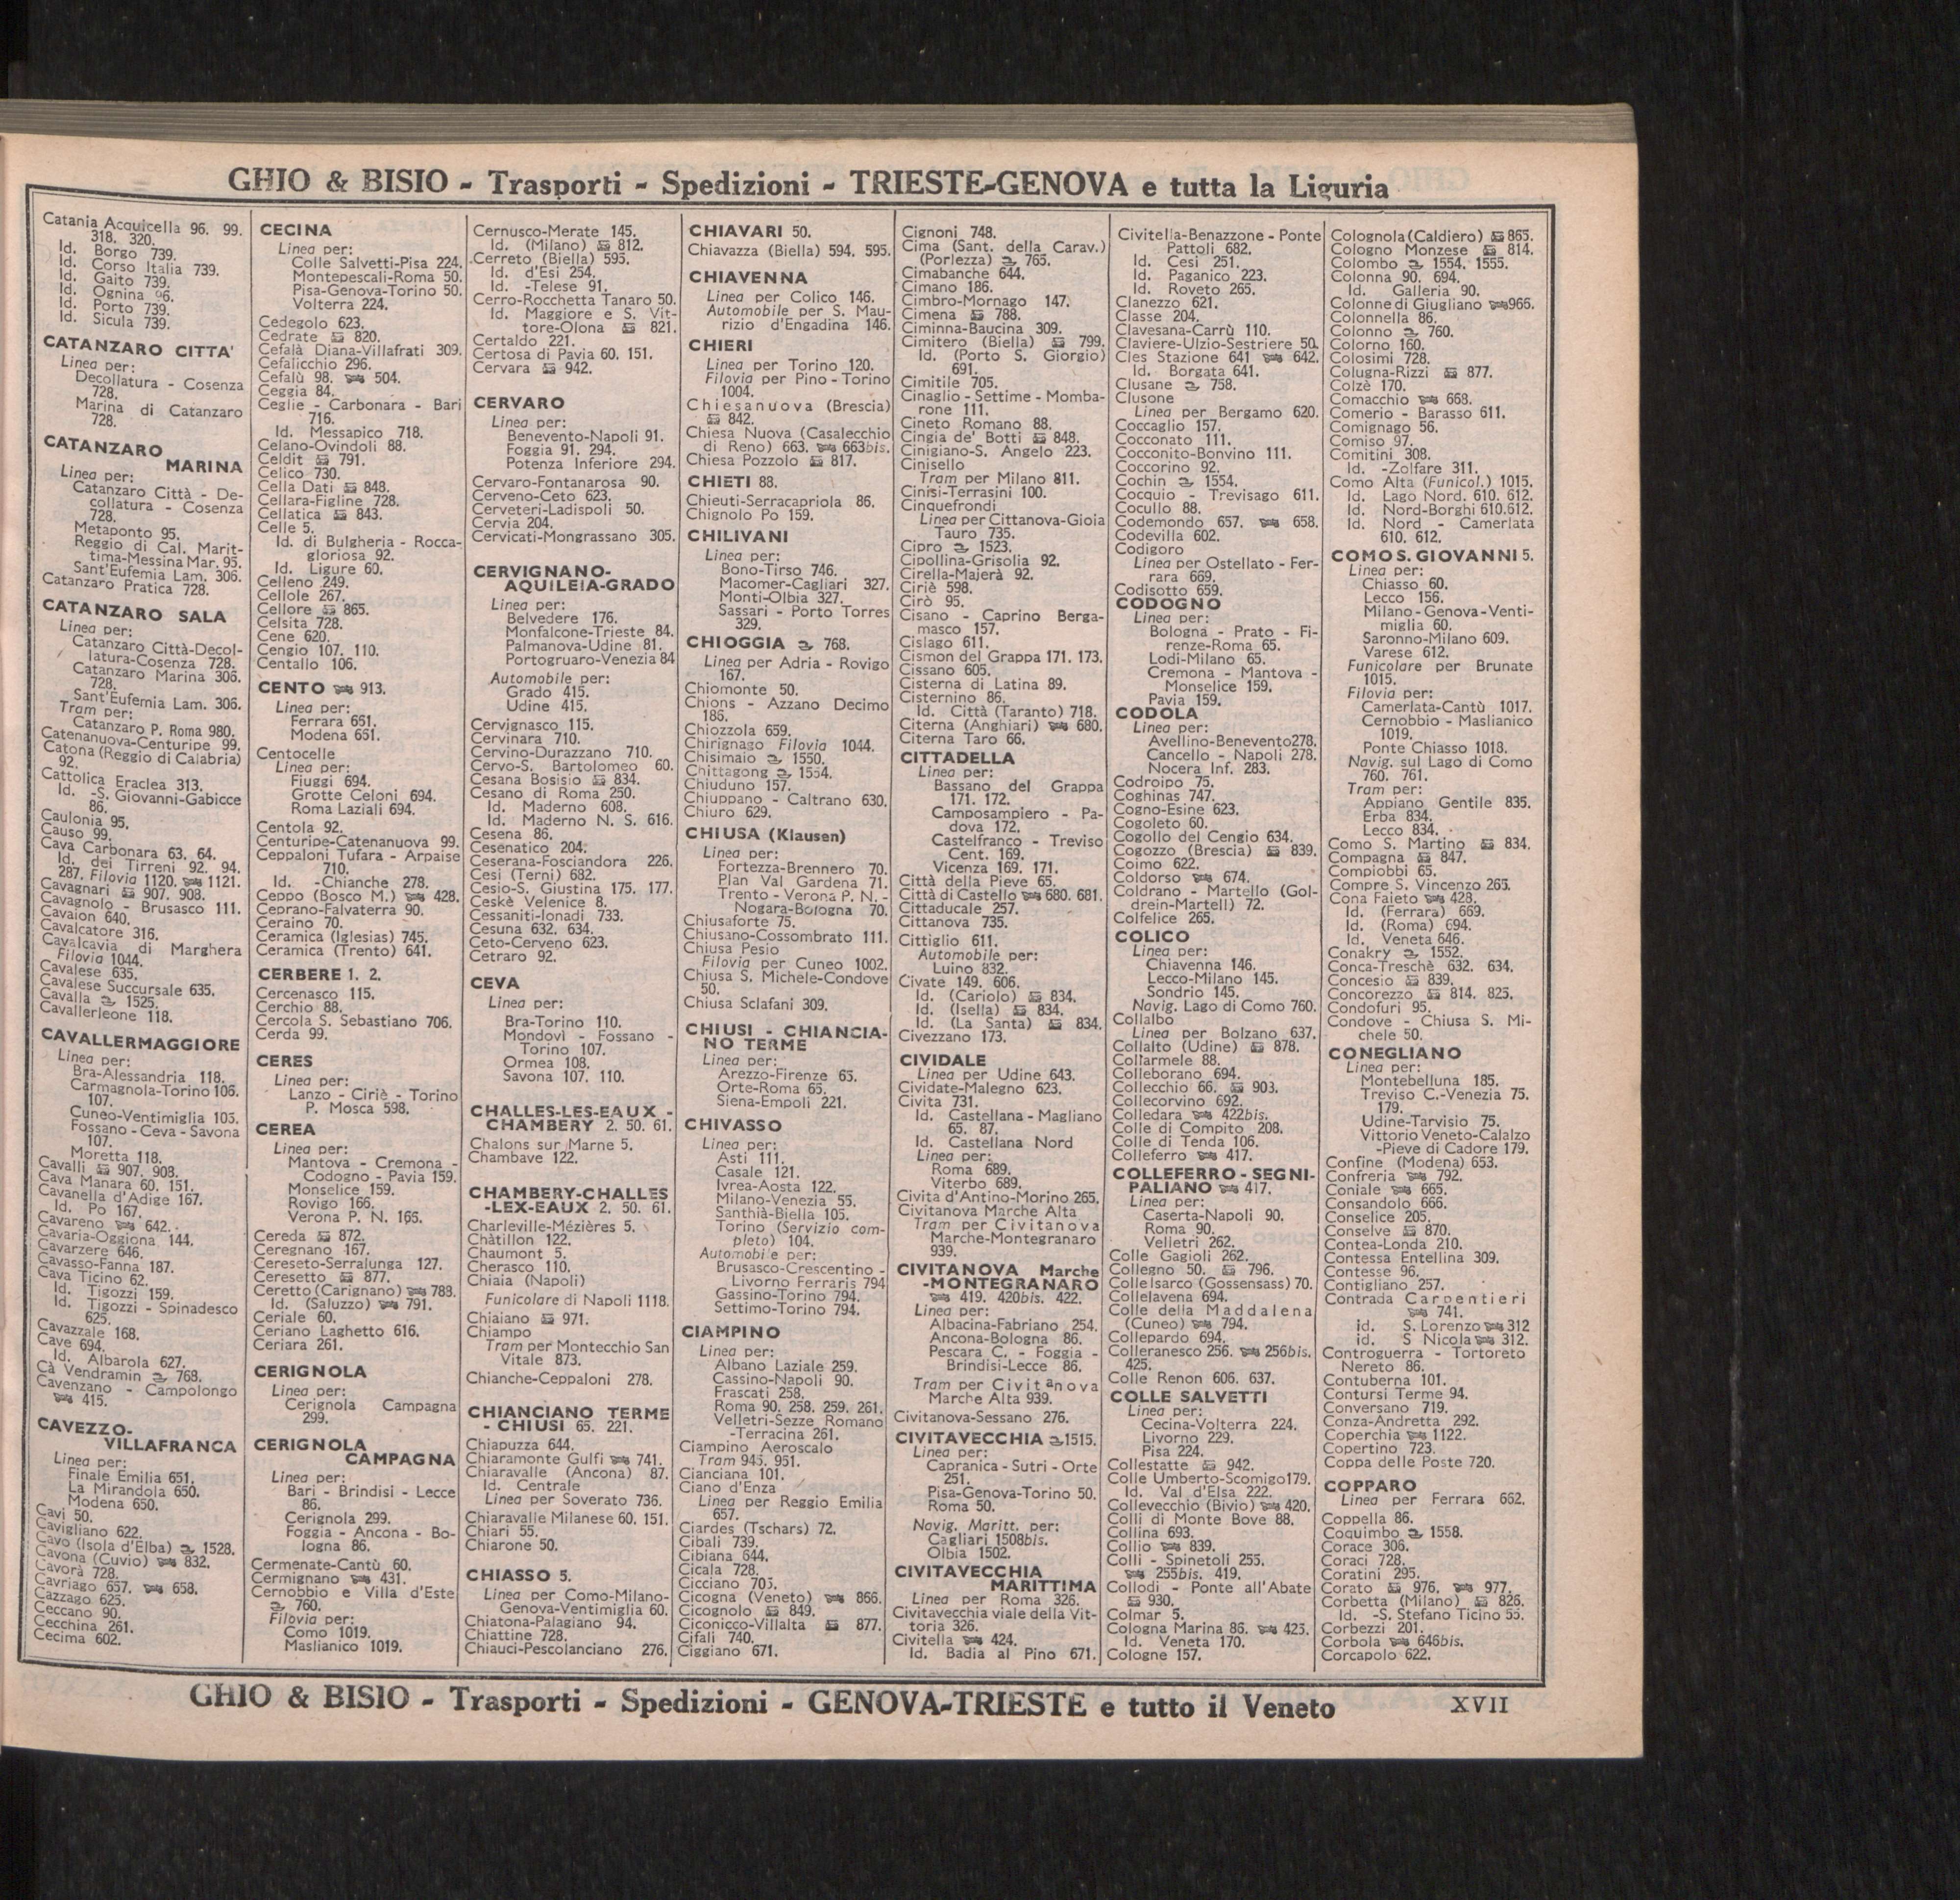 GHIO & BISIO - Trasporti - Spedizioni - TRIESTE-GENOVA e tutta la Liguria
Catania Acquicella 96. 99.
318. 320.
Id. Borgo 739.
Id. Corso Italia 739.
Id. Gaito 739.
Id. Ognina 96.
Id. Porto 739.
Id. Sicula 739.
CATANZARO CITTA'
Linea per:
Decollatura - Cosenza
728.
Marina di Catanzaro
728.
CATANZARO
MARINA
Linea per:
Catanzaro Città - De-
collatura - Cosenza
728.
Metaponto 95.
Reggio di Cal. Marit-
tima-Messina Mar. 95.
Sant'Eufemia Lam. 306.
Catanzaro Pratica 728.
CATANZARO SALA
Linea per:
Catanzaro Città-Decol-
latura-Cosenza 728.
Catanzaro Marina 306.
728.
Sant'Eufemia Lam. 306.
Tram per:
Catanzaro P. Roma 980.
Catenanuova-Centuripe 99.
Catona (Reggio di Calabria)
92.
Cattolica Eraclea 313.
Id. -S. Giovanni-Gabicce
86.
Caulonia 95.
Causo 99.
Cava Carbonara 63. 64.
Id. dei Tirreni 92. 94.
287. Filovia 1120. 1121.
Cavagnari 907. 908.
Cavagnolo - Brusasco 111.
Cavaion 640.
Cavalcatore 316.
Cavalcavia di Marghera
Filovia 1044.
Cavalese 635.
Cavalese Succursale 635.
Cavalla 1525.
Cavallerleone 118.
CAVALLERMAGGIORE
Linea per:
Bra-Alessandria 118.
Carmagnola-Torino 106.
107.
Cuneo-Ventimiglia 105.
Fossano - Ceva - Savona
107.
Moretta 118.
Cavalli 907. 908.
Cava Manara 60. 151.
Cavanella d'Adige 167.
Id. Po 167.
Cavareno 642.
Cavaria-Oggiona 144.
Cavarzere 646.
Cavasso-Fanna 187.
Cava Ticino 62.
Id. Tigozzi 159.
Id. Tigozzi - Spinadesco
625.
Cavazzale 168.
Cave 694.
Id. Albarola 627.
Cà Vendramin 768.
Cavenzano - Campolongo
415.
CAVEZZO-
VILLAFRANCA
Linea per:
Finale Emilia 651.
La Mirandola 650.
Modena 650.
Cavi 50.
Cavigliano 622.
Cavo (Isola d'Elba) 1528.
Cavona (Cuvio) 832.
Cavorà 728.
Cavriago 657. 658.
Cazzago 625.
Ceccano 90.
Cecchina 261.
Cecima 602.
CECINA
Linea per:
Colle Salvetti-Pisa 224.
Montepescali-Roma 50.
Pisa-Genova-Torino 50.
Volterra 224.
Cedegolo 623.
Cedrate 820.
Cefalà Diana-Villafrati 309.
Cefalicchio 296.
Cefalù 98. 504.
Ceggia 84.
Ceglie - Carbonara - Bari
716.
Id. Messapico 718.
Celano-Ovindoli 88.
Celdit 791.
Celico 730.
Cella Dati 848.
Cellara-Figline 728.
Cellatica 843.
Celle 5.
Id. di Bulgheria - Rocca-
gloriosa 92.
Id. Ligure 60.
Celleno 249.
Cellole 267.
Cellore 865.
Celsita 728.
Cene 620.
Cengio 107. 110.
Centallo 106.
CENTO 913.
Linea per:
Ferrara 661.
Modena 661.
Centocelle
Linea per:
Fiuggi 694.
Grotte Celoni 694.
Roma Laziali 694.
Centola 92.
Centuripe-Catenanuova 99.
Ceppaloni Tufara - Arpaise
710.
Id. -Chianche 278.
Ceppo (Bosco M.) 428.
Ceprano-Falvaterra 90.
Ceraino 70.
Ceramica (Iglesias) 745.
Ceramica (Trento) 641.
CERBERE 1. 2.
Cercenasco 115.
Cerchio 88.
Cercola S. Sebastiano 706.
Cerda 99.
CERES
Linea per:
Lanzo - Ciriè - Torino
P. Mosca 598.
CEREA
Linea per:
Mantova - Cremona -
Codogno - Pavia 159.
Monselice 159.
Rovigo 166.
Verona P. N. 166.
Cereda 872.
Ceregnano 167.
Cereseto-Serralunga 127.
Ceresetto 877.
Ceretto (Carignano) 788.
Id. (Saluzzo) 791.
Ceriale 60.
Ceriano Laghetto 616.
Ceriara 261.
CERIGNOLA
Linea per:
Cerignola Campagna
299.
CERIGNOLA
CAMPAGNA
Linea per:
Bari - Brindisi - Lecce
86.
Cerignola 299.
Foggia - Ancona - Bo-
logna 86.
Cermenate-Cantù 60.
Cermignano 431.
Cernobbio e Villa d'Este
760.
Filovia per:
Como 1019.
Maslianico 1019.
Cernusco-Merate 145.
Id. (Milano) 812.
Cerreto (Biella) 595.
Id. d'Esi 254.
Id. -Telese 91.
Cerro-Rocchetta Tanaro 50.
Id. Maggiore e S. Vit-
tore-Olona 821.
Certaldo 221.
Certosa di Pavia 60. 151.
Cervara 942.
CERVARO
Linea per:
Benevento-Napoli 91.
Foggia 91. 294.
Potenza Inferiore 294.
Cervaro-Fontanarosa 90.
Cerveno-Ceto 623.
Cerveteri-Ladispoli 50.
Cervia 204.
Cervicati-Mongrassano 305.
CERVIGNANO-
AQUILEIA-GRADO
Linea per:
Belvedere 176.
Monfalcone-Trieste 84.
Palmanova-Udine 81.
Portogruaro-Venezia 84
Automobile per:
Grado 415.
Udine 415.
Cervignasco 115.
Cervinara 710.
Cervino-Durazzano 710.
Cervo-S. Bartolomeo 60.
Cesana Bosisio 834.
Cesano di Roma 250.
Id. Maderno 608.
Id. Maderno N. S. 616.
Cesena 86.
Cesenatico 204.
Ceserana-Fosciandora 226.
Cesi (Terni) 682.
Cesio-S. Giustina 175. 177.
Ceskè Velenice 8.
Cessaniti-Ionadi 733.
Cesuna 632. 634.
Ceto-Cerveno 623.
Cetraro 92.
CEVA
Linea per:
Bra-Torino 110.
Mondovì - Fossano -
Torino 107.
Ormea 108.
Savona 107. 110.
CHALLES-LES-EAUX -
CHAMBERY 2. 50. 61.
Chalons sur Marne 5.
Chambave 122.
CHAMBERY-CHALLES
-LEX-EAUX 2. 50. 61.
Charleville-Mézières 5.
Châtillon 122.
Chaumont 5.
Cherasco 110.
Chiaia (Napoli)
Funicolare di Napoli 1118.
Chiaiano 971.
Chiampo
Tram per Montecchio San
Vitale 873.
Chianche-Ceppaloni 278.
CHIANCIANO TERME
- CHIUSI 65. 221.
Chiapuzza 644.
Chiaramonte Gulfi 741.
Chiaravalle (Ancona) 87.
Id. Centrale
Linea per Soverato 736.
Chiaravalle Milanese 60. 151.
Chiari 55.
Chiarone 50.
CHIASSO 5.
Linea per Como-Milano-
Genova-Ventimiglia 60.
Chiatona-Palagiano 94.
Chiattine 728.
Chiauci-Pescolanciano 276.
CHIAVARI 50.
Chiavazza (Biella) 594. 595.
CHIAVENNA
Linea per Colico 146.
Automobile per S. Mau-
rizio d'Engadina 146.
CHIERI
Linea per Torino 120.
Filovia per Pino - Torino
1004.
Chiesanuova (Brescia)
842.
Chiesa Nuova (Casalecchio
di Reno) 663. 663bis.
Chiesa Pozzolo 817.
CHIETI 88.
Chieuti-Serracapriola 86.
Chignolo Po 159.
CHILIVANI
Linea per:
Bono-Tirso 746.
Macomer-Cagliari 327.
Monti-Olbia 327.
Sassari - Porto Torres
329.
CHIOGGIA 768.
Linea per Adria - Rovigo
167.
Chiomonte 50.
Chions - Azzano Decimo
186.
Chiozzola 659.
Chirignago Filovia 1044.
Chisimaio 1550.
Chittagong 1554.
Chiuduno 157.
Chiuppano - Caltrano 630.
Chiuro 629.
CHIUSA (Klausen)
Linea per:
Fortezza-Brennero 70.
Plan Val Gardena 71.
Trento - Verona P. N. -
Nogara-Bologna 70.
Chiusaforte 75.
Chiusano-Cossombrato 111.
Chiusa Pesio
Filovia per Cuneo 1002.
Chiusa S. Michele-Condove
50.
Chiusa Sclafani 309.
CHIUSI - CHIANCIA-
NO TERME
Linea per:
Arezzo-Firenze 65.
Orte-Roma 65.
Siena-Empoli 221.
CHIVASSO
Linea per:
Asti 111.
Casale 121.
Ivrea-Aosta 122.
Milano-Venezia 55.
Santhià-Biella 105.
Torino (Servizio com-
pleto) 104.
Automobile per:
Brusasco-Crescentino -
Livorno Ferraris 794
Gassino-Torino 794.
Settimo-Torino 794.
CIAMPINO
Linea per:
Albano Laziale 259.
Cassino-Napoli 90.
Frascati 258.
Roma 90. 258. 259. 261.
Velletri-Sezze Romano
-Terracina 261.
Ciampino Aeroscalo
Tram 945. 951.
Cianciana 101.
Ciano d'Enza
Linea per Reggio Emilia
657.
Ciardes (Tschars) 72.
Cibali 739.
Cibiana 644.
Cicala 728.
Cicciano 705.
Cicogna (Veneto) 866.
Cicognolo 849.
Ciconicco-Villalta 877.
Cifali 740.
Ciggiano 671.
Cignoni 748.
Cima (Sant. della Carav.)
(Porlezza) 765.
Cimabanche 644.
Cimano 186.
Cimbro-Mornago 147.
Cimena 788.
Ciminna-Baucina 309.
Cimitero (Biella) 799.
Id. (Porto S. Giorgio)
691.
Cimitile 705.
Cinaglio - Settime - Momba-
rone 111.
Cineto Romano 88.
Cingia de' Botti 848.
Cinigiano-S. Angelo 223.
Cinisello
Tram per Milano 811.
Cinisi-Terrasini 100.
Cinquefrondi
Linea per Cittanova-Gioia
Tauro 735.
Cipro 1523.
Cipollina-Grisolia 92.
Cirella-Majerà 92.
Ciriè 598.
Cirò 95.
Cisano - Caprino Berga-
masco 157.
Cislago 611.
Cismon del Grappa 171. 173.
Cissano 605.
Cisterna di Latina 89.
Cisternino 86.
Id. Città (Taranto) 718.
Citerna (Anghiari) 680.
Citerna Taro 66.
CITTADELLA
Linea per:
Bassano del Grappa
171. 172.
Camposampiero - Pa-
dova 172.
Castelfranco - Treviso
Cent. 169.
Vicenza 169. 171.
Città della Pieve 65.
Città di Castello 680. 681.
Cittaducale 257.
Cittanova 735.
Cittiglio 611.
Automobile per:
Luino 832.
Civate 149. 606.
Id. (Cariolo) 834.
Id. (Isella) 834.
Id. (La Santa) 834.
Civezzano 173.
CIVIDALE
Linea per Udine 643.
Cividate-Malegno 623.
Civita 731.
Id. Castellana - Magliano
65. 87.
Id. Castellana Nord
Linea per:
Roma 689.
Viterbo 689.
Civita d'Antino-Morino 265.
Civitanova Marche Alta
Tram per Civitanova
Marche-Montegranaro
939.
CIVITANOVA Marche
-MONTEGRANARO
419. 420bis. 422.
Linea per:
Albacina-Fabriano 254.
Ancona-Bologna 86.
Pescara C. - Foggia -
Brindisi-Lecce 86.
Tram per Civitanova
Marche Alta 939.
Civitanova-Sessano 276.
CIVITAVECCHIA 1515.
Linea per:
Capranica - Sutri - Orte
251.
Pisa-Genova-Torino 50.
Roma 50.
Navig. Maritt. per:
Cagliari 1508bis.
Olbia 1502.
CIVITAVECCHIA
MARITTIMA
Linea per Roma 326.
Civitavecchia viale della Vit-
toria 326.
Civitella 424.
Id. Badia al Pino 671.
Civitella-Benazzone - Ponte
Pattoli 682.
Id. Cesi 251.
Id. Paganico 223.
Id. Roveto 265.
Clanezzo 621.
Classe 204.
Clavesana-Carrù 110.
Claviere-Ulzio-Sestriere 50.
Cles Stazione 641 642.
Id. Borgata 641.
Clusane 758.
Clusone
Linea per Bergamo 620.
Coccaglio 157.
Cocconato 111.
Cocconito-Bonvino 111.
Coccorino 92.
Cochin 1554.
Cocquio - Trevisago 611.
Cocullo 88.
Codemondo 657. 658.
Codevilla 602.
Codigoro
Linea per Ostellato - Fer-
rara 669.
Codisotto 659.
CODOGNO
Linea per:
Bologna - Prato - Fi-
renze-Roma 65.
Lodi-Milano 65.
Cremona - Mantova -
Monselice 159.
Pavia 159.
CODOLA
Linea per:
Avellino-Benevento278.
Cancello - Napoli 278.
Nocera Inf. 283.
Codroipo 75.
Coghinas 747.
Cogno-Esine 623.
Cogoleto 60.
Cogollo del Cengio 634.
Cogozzo (Brescia) 839.
Coimo 622.
Coldorso 674.
Coldrano - Martello (Gol-
drein-Martell) 72.
Colfelice 265.
COLICO
Linea per:
Chiavenna 146.
Lecco-Milano 145.
Sondrio 145.
Navig. Lago di Como 760.
Collalbo
Linea per Bolzano 637.
Collalto (Udine) 878.
Collarmele 88.
Colleborano 694.
Collecchio 66. 903.
Collecorvino 692.
Colledara 422bis.
Colle di Compito 208.
Colle di Tenda 106.
Colleferro 417.
COLLEFERRO - SEGNI-
PALIANO 417.
Linea per:
Caserta-Napoli 90.
Roma 90.
Velletri 262.
Colle Gagioli 262.
Collegno 50. 796.
Collelsarco (Gossensass) 70.
Collelavena 694.
Colle della Maddalena
(Cuneo) 794.
Collepardo 694.
Colleranesco 256. 256bis.
425.
Colle Renon 606. 637.
COLLE SALVETTI
Linea per:
Cecina-Volterra 224.
Livorno 229.
Pisa 224.
Collestatte 942.
Colle Umberto-Scomigo179.
Id. Val d'Elsa 222.
Collevecchio (Bivio) 420.
Colli di Monte Bove 88.
Collina 693.
Collio 839.
Colli - Spinetoli 255.
255bis. 419.
Collodi - Ponte all'Abate
930.
Colmar 5.
Cologna Marina 86. 425.
Id. Veneta 170.
Cologne 157.
Colognola (Caldiero) 865.
Cologno Monzese 814.
Colombo 1554. 1555.
Colonna 90. 694.
Id. Galleria 90.
Colonne di Giugliano 966.
Colonnella 86.
Colonno 760.
Colorno 160.
Colosimi 728.
Colugna-Rizzi 877.
Colzè 170.
Comacchio 668.
Comerio - Barasso 611.
Comignago 56.
Comiso 97.
Comitini 308.
Id. -Zolfare 311.
Como Alta (Funicol.) 1015.
Id. Lago Nord. 610. 612.
Id. Nord-Borghi 610.612.
Id. Nord - Camerlata
610. 612.
COMO S. GIOVANNI 5.
Linea per:
Chiasso 60.
Lecco 156.
Milano - Genova - Venti-
miglia 60.
Saronno-Milano 609.
Varese 612.
Funicolare per Brunate
1015.
Filovia per:
Camerlata-Cantù 1017.
Cernobbio - Maslianico
1019.
Ponte Chiasso 1018.
Navig. sul Lago di Como
760. 761.
Tram per:
Appiano Gentile 835.
Erba 834.
Lecco 834.
Como S. Martino 834.
Compagna 847.
Compiobbi 65.
Compre S. Vincenzo 265.
Cona Faieto 428.
Id. (Ferrara) 669.
Id. (Roma) 694.
Id. Veneta 646.
Conakry 1552.
Conca-Treschè 632. 634.
Concesio 839.
Concorezzo 814. 825.
Condofuri 95.
Condove - Chiusa S. Mi-
chele 50.
CONEGLIANO
Linea per:
Montebelluna 185.
Treviso C.-Venezia 75.
179.
Udine-Tarvisio 75.
Vittorio Veneto-Calalzo
-Pieve di Cadore 179.
Confine (Modena) 653.
Confreria 792.
Coniale 665.
Consandolo 666.
Conselice 205.
Conselve 870.
Contea-Londa 210.
Contessa Entellina 309.
Contesse 96.
Contigliano 257.
Contrada Carpentieri
741.
id. S. Lorenzo 312
id. S Nicola 312.
Controguerra - Tortoreto
Nereto 86.
Contuberna 101.
Contursi Terme 94.
Conversano 719.
Conza-Andretta 292.
Coperchia 1122.
Copertino 723.
Coppa delle Poste 720.
COPPARO
Linea per Ferrara 662.
Coppella 86.
Coquimbo 1558.
Corace 306.
Coraci 728.
Coratini 295.
Corato 976. 977.
Corbetta (Milano) 826.
Id. -S. Stefano Ticino 55.
Corbezzi 201.
Corbola 646bis.
Corcapolo 622.
GHIO & BISIO - Trasporti - Spedizioni - GENOVA-TRIESTE e tutto il Veneto
XVII